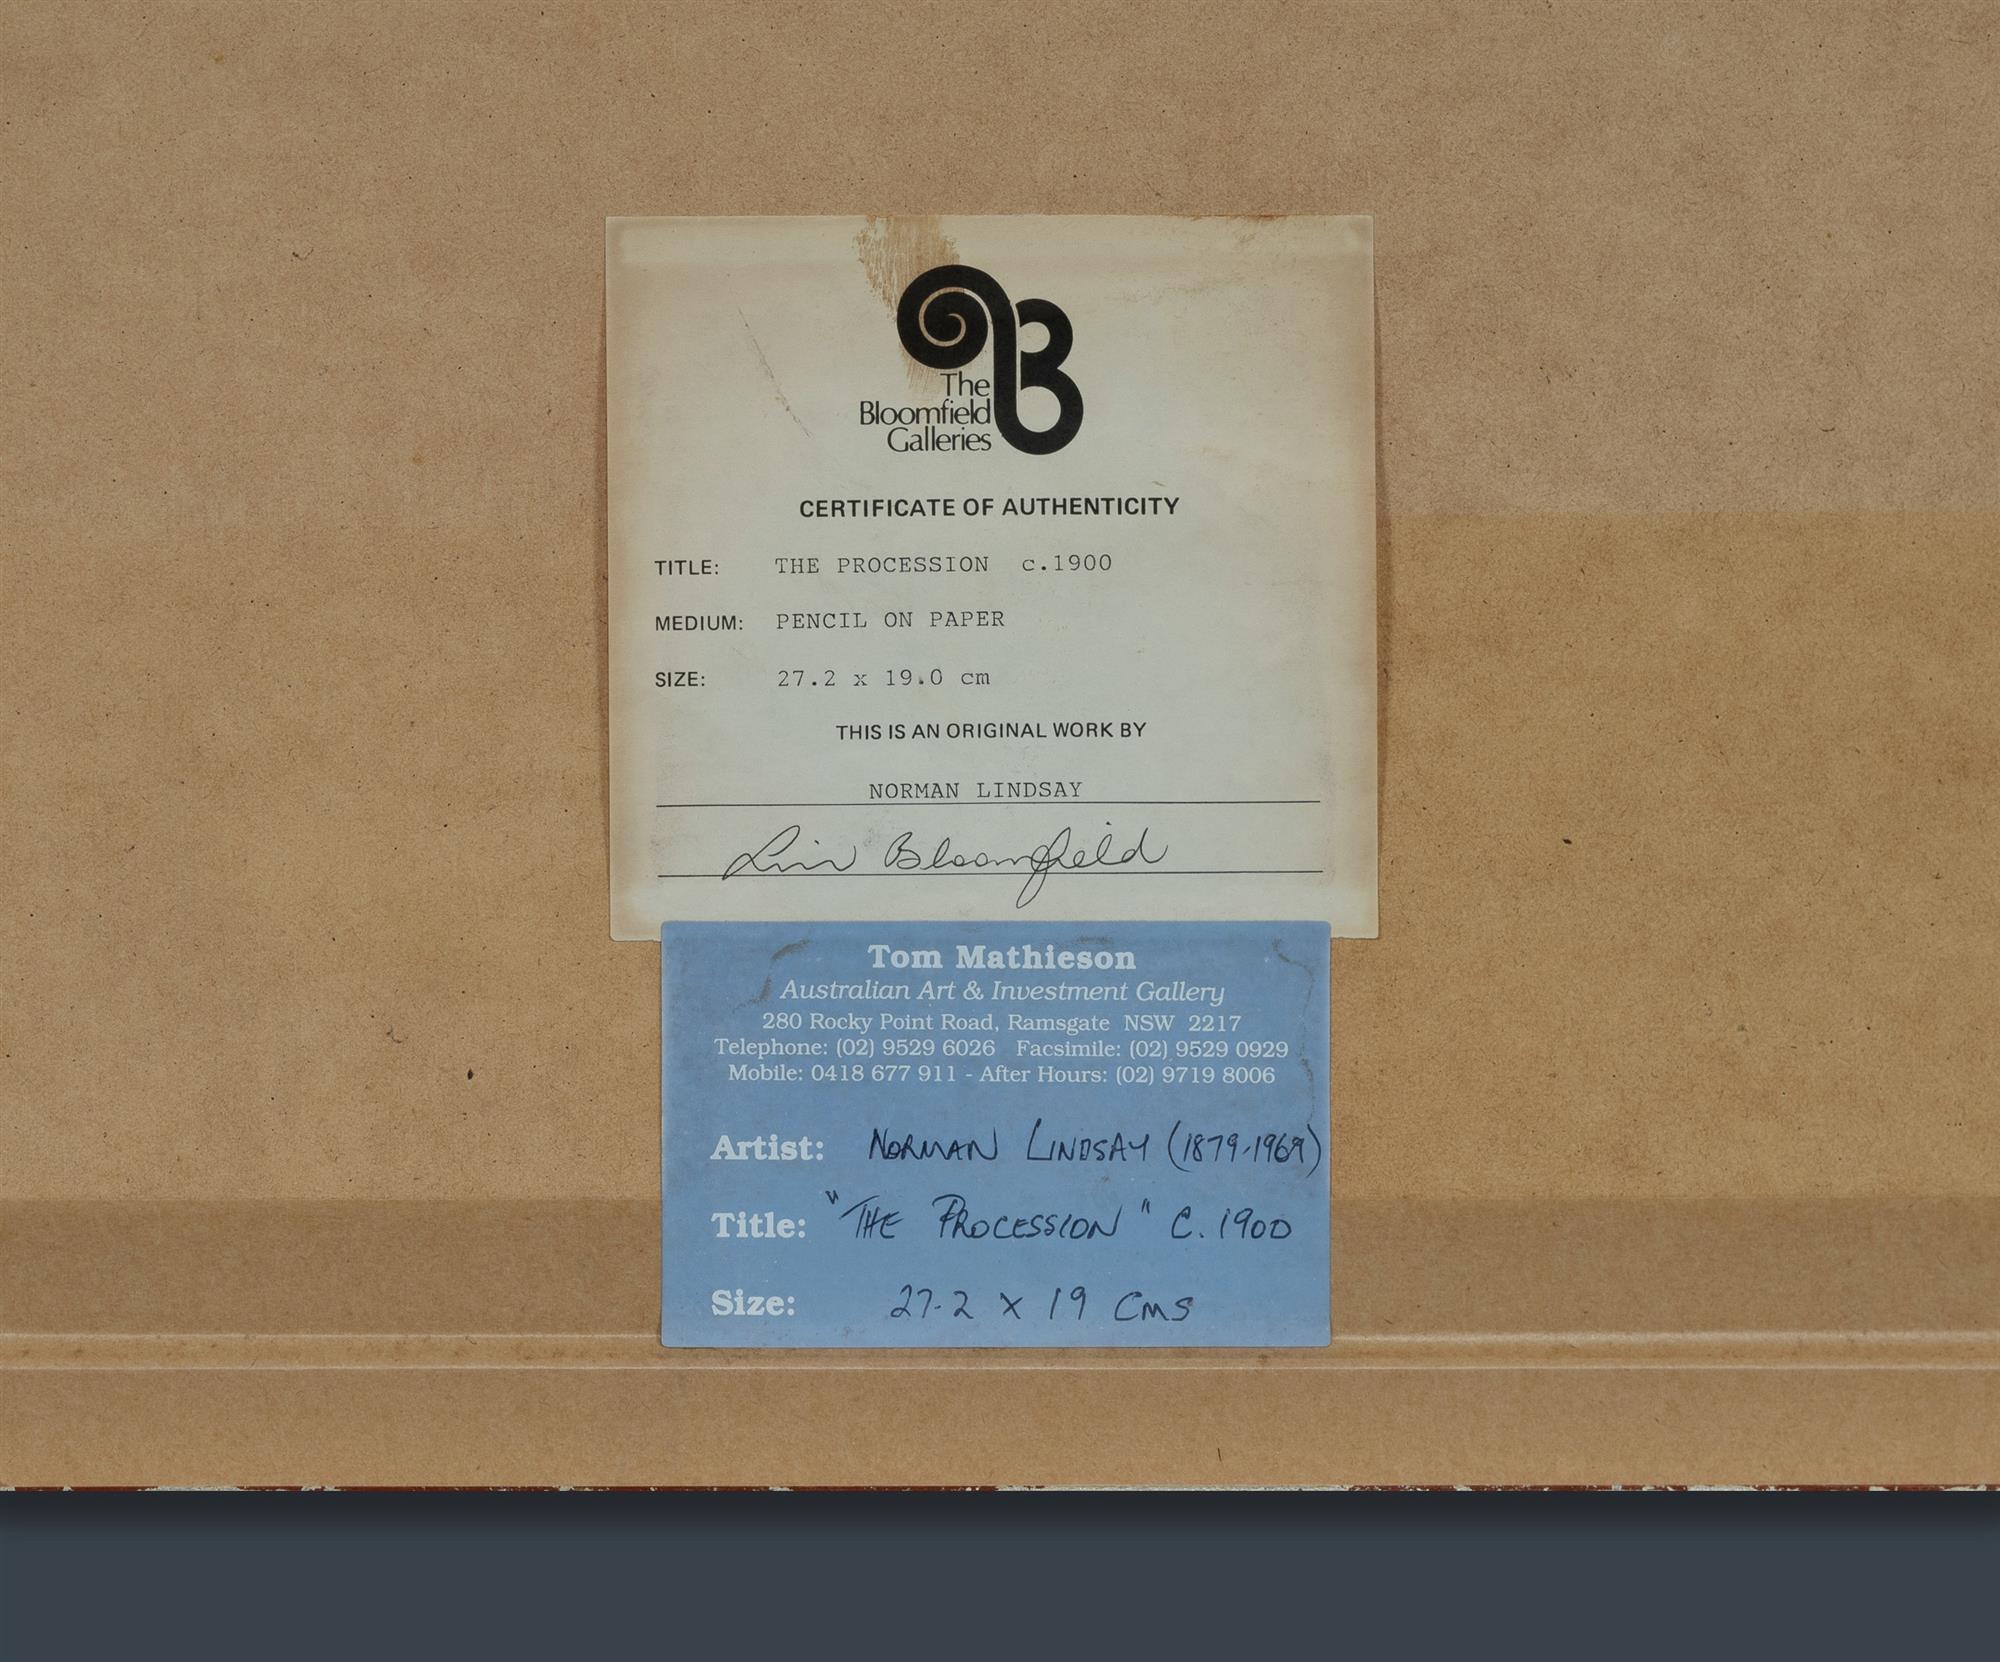 The
Bloomfield
Galleries
CERTIFICATE OF AUTHENTICITY
TITLE: THE PROCESSION c.1900
MEDIUM: PENCIL ON PAPER
SIZE: 27.2 x 19.0 cm
THIS IS AN ORIGINAL WORK BY
NORMAN LINDSAY
Lin Bloomfield
Tom Mathieson
Australian Art & Investment Gallery
280 Rocky Point Road, Ramsgate NSW 2217
Telephone: (02) 9529 6026 Facsimile: (02) 9529 0929
Mobile: 0418 677 911 - After Hours: (02) 9719 8006
Artist: NORMAN LINDSAY (1879-1969)
Title: "THE PROCESSION" C. 1900
Size: 27.2 x 19 CMS